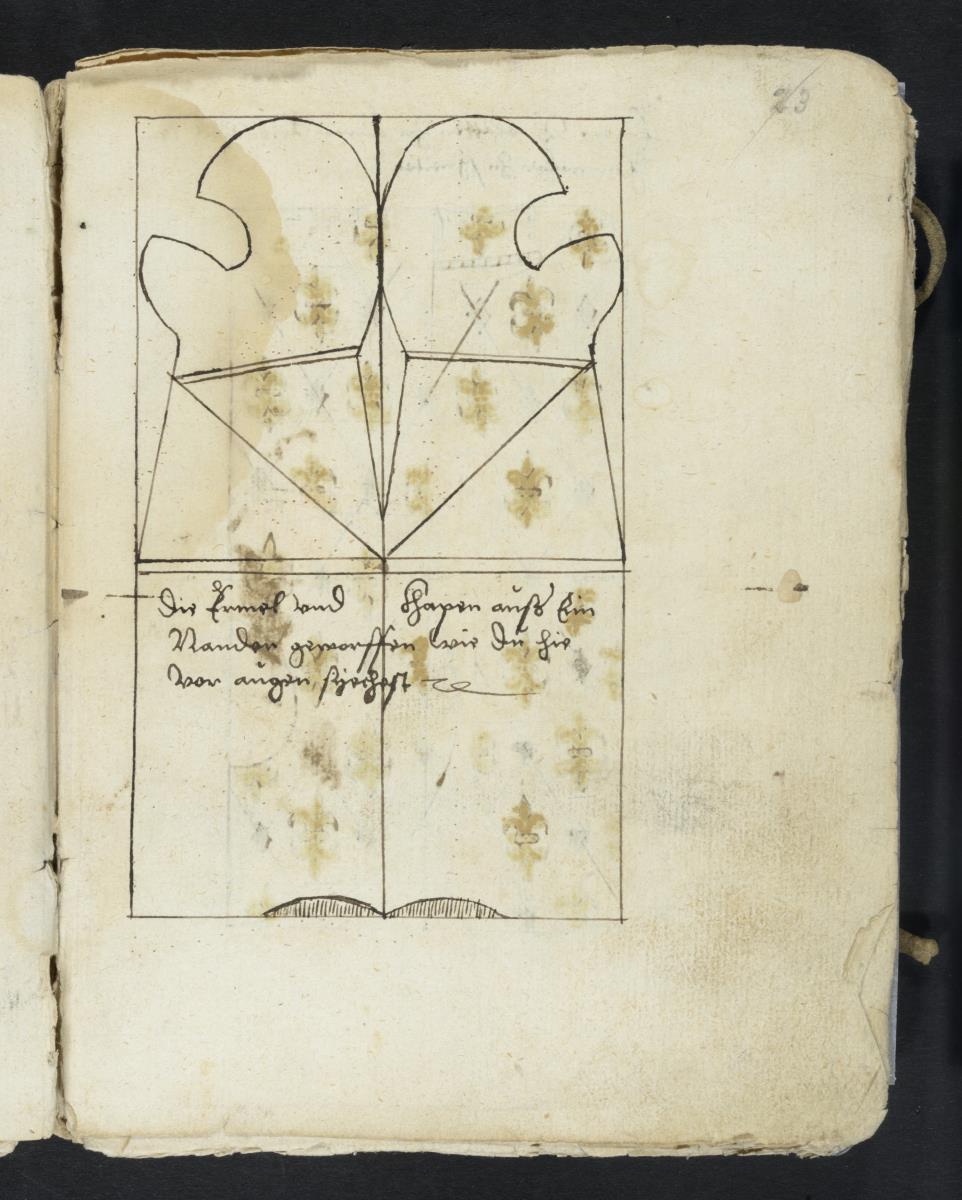 23
Die Ermel vnd Khapen auß Ein
Nanden geworffen wie du hie
vor augen syehest